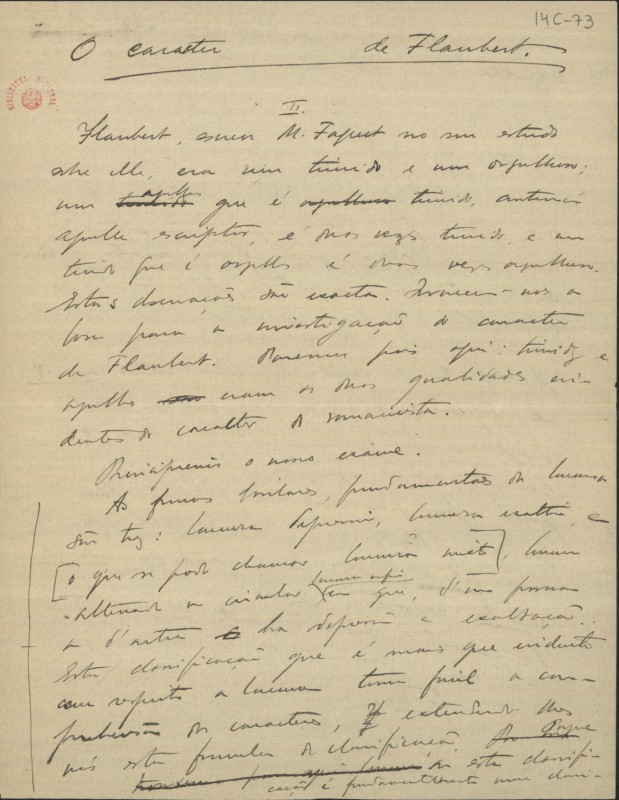 14C-73
O caracter de Flaubert.
BIBLIOTECA NACIONAL
II.
Flaubert, M. Faguet no seu estudo
sobre elle, era um timido e um orgulhoso;
um timido orgulho que é orgulhoso timido,
aquelle escriptor, é duas vezes timido, e um
timido que é orgulho é duas vezes orgulhoso.
Estas observações são exactas. Fornecem-nos a
base para a investigação do caracter
de Flaubert. pois aqui: timidez e
orgulho eram as duas qualidades evi-
dentes do caracter do romancista.
Principiemos o nosso exame.
As formas basilares, fundamentaes da loucura
são trez: loucura depressiva, loucura exaltada, e
[o que se pode chamar loucura mixta], loucura
alternada ou circular em que, d'uma forma
ou d'outra ha depressão e exaltação.
Esta classificação que é mais que evidente
com respeito a loucura torna facil a com-
prehensão dos caracteres, extendendo-lhes
nós esta formula de classificação. Porque
esta classifi-
cação é fundamentalmente uma classi-